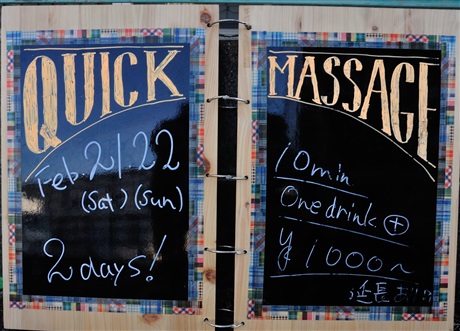 QUICK
Feb. 21. 22
(Sat) (Sun)
2 days!
MASSAGE
10min.
One drink. +
¥1000~
延長あり